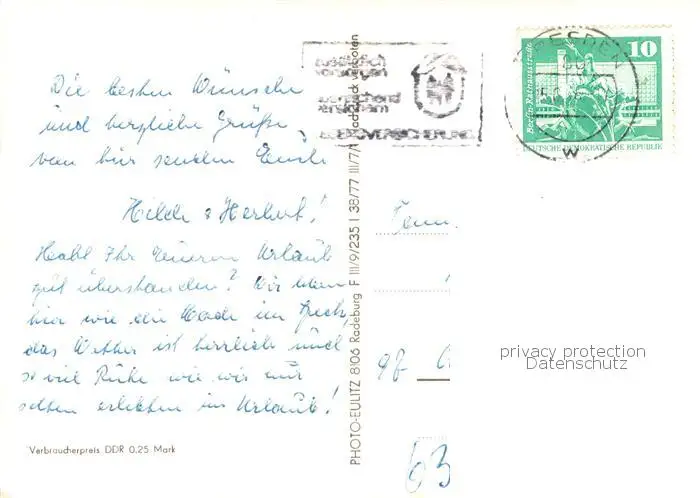 Die besten Wünsche
und herzliche Grüße,
von hier senden Euch
Hilde & Herbert!
Habt Ihr Eueren Urlaub
gut überstanden? Wir leben
hier wie die Made im Speck,
das Wetter ist herrlich und
so viel Ruhe wie wir nur
selten erlebten im Urlaub!
Verbraucherpreis DDR 0,25 Mark
PHOTO-EULITZ 8106 Radeburg F III/9/235 I 38/77 III/7/1 Nachdruck verboten
zusätzlich
vorsorgen
VERSICHERUNG
DRESDEN
W
10
Berlin-Rathausstraße
DEUTSCHE DEMOKRATISCHE REPUBLIK
Fam.
63
privacy protection
Datenschutz